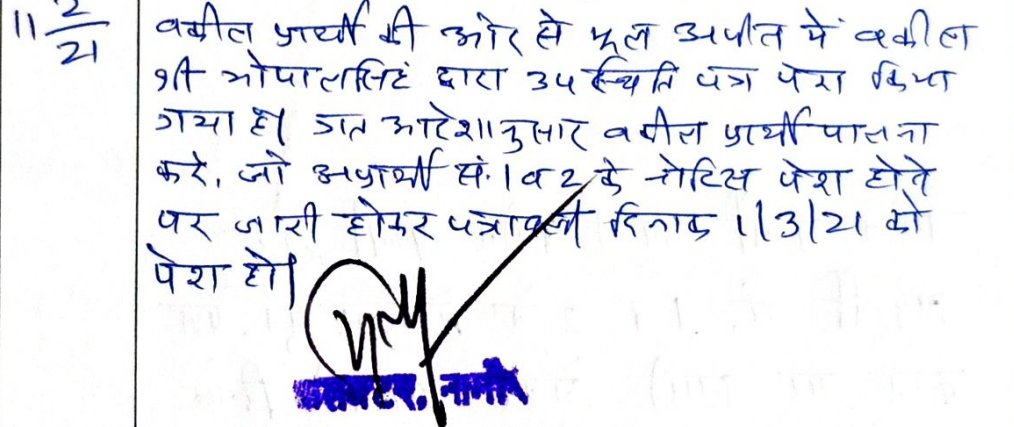 11 2/21
वकील प्रार्थी की ओर से मूल अपील में वकील
श्री गोपालसिहं द्वारा उपस्थिति पत्र पेश किया
गया है। गत आदेशानुसार वकील प्रार्थी पालना
करे, जो अप्रार्थी सं. 1 व 2 के नोटिस पेश होने
पर जारी होकर पत्रावली दिनांक 1/3/21 को
पेश हो।
कलक्टर, नागौर